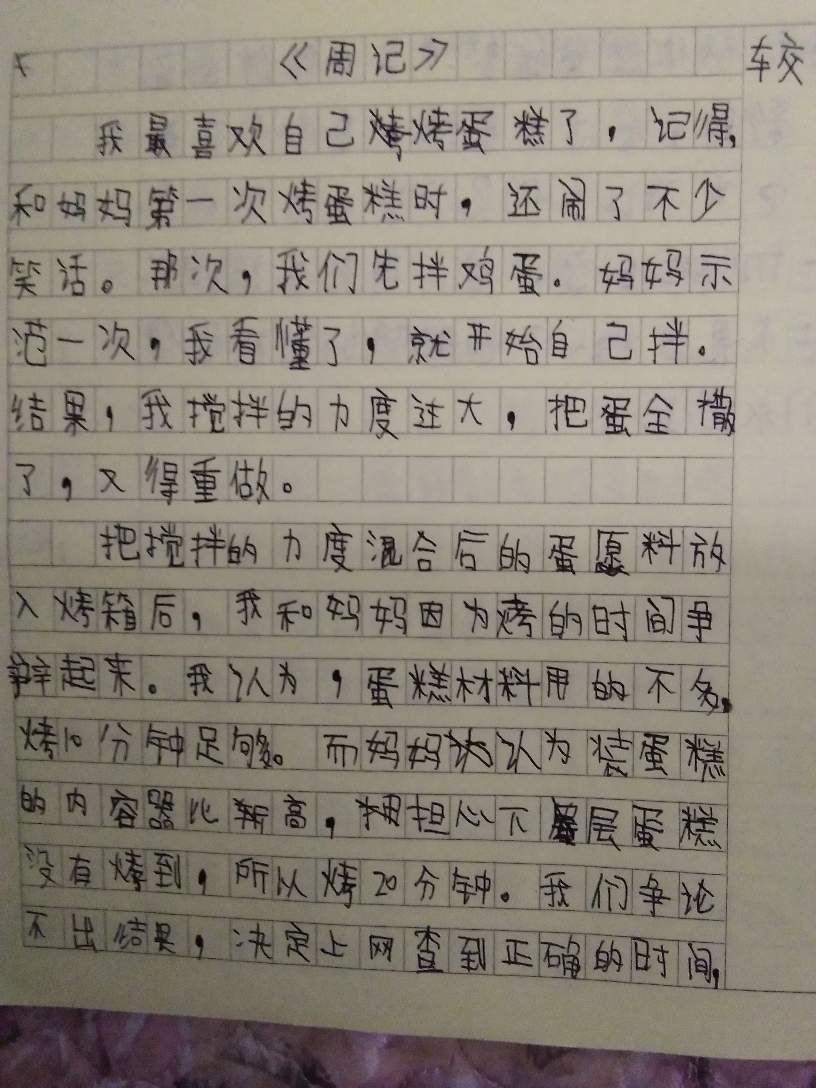 《周记》
我最喜欢自己烤烤蛋糕了，记得，
和妈妈第一次烤蛋糕时，还闹了不少
笑话。那次，我们先拌鸡蛋。妈妈示
范一次，我看懂了，就开始自己拌。
结果，我搅拌的力度过大，把蛋全撒
了，又得重做。
把搅拌的力度混合后的蛋原料放
入烤箱后，我和妈妈因为烤的时间争
辩起来。我认为，蛋糕材料用的不多，
烤10分钟足够。而妈妈认为装蛋糕
的内容器比较高，担心下层蛋糕
没有烤到，所以烤20分钟。我们争论
不出结果，决定上网查到正确的时间，
较